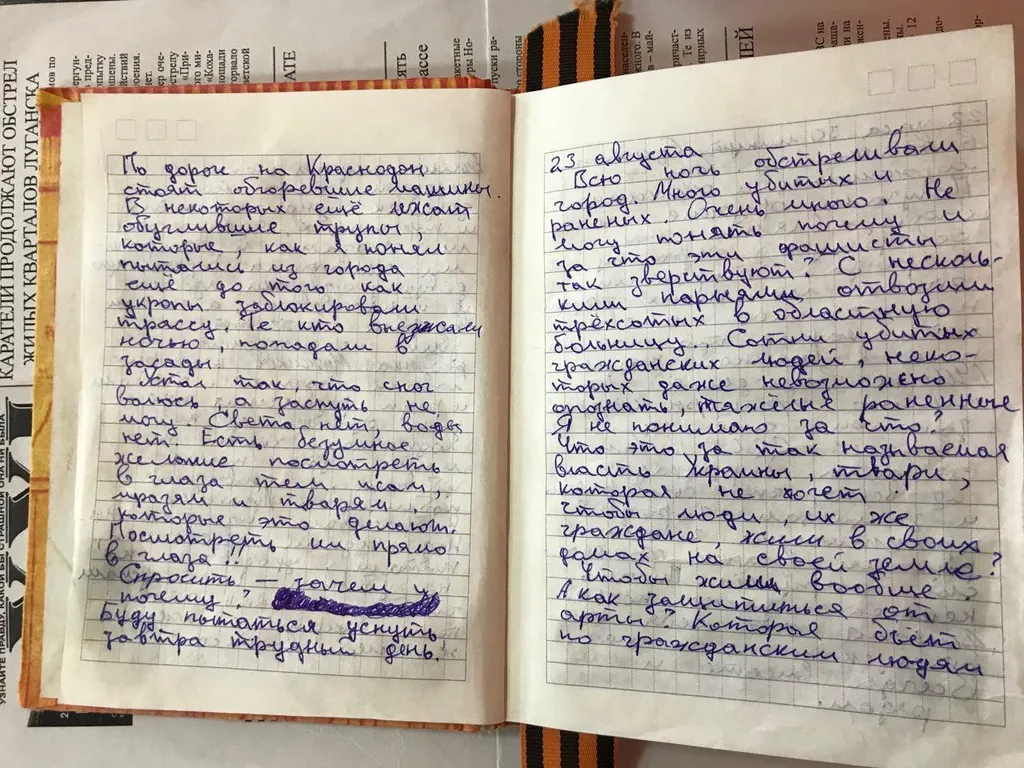 По дороге на Краснодон
стоят обгоревшие машины.
В некоторых ещё лежат
обуглившие трупы,
которые, как я понял
пытались из города
ещё до того как
укропы заблокировали
трассу. Те кто выезжали
ночью, попадали в
засады.
Устал так, что с ног
валюсь а заснуть не
могу. Света нет, воды
нет. Есть безумное
желание посмотреть
в глаза тем псам,
мразям и тварям,
которые это делают.
Посмотреть им прямо
в глаза!!
Спросить — зачем и
почему?
Буду пытаться уснуть
завтра трудный день.
23 августа
Всю ночь обстреливали
город. Много убитых и
раненых. Очень много. Не
могу понять почему и
за что эти фашисты
так зверствуют? С несколь-
кими парнями отвозили
трёхсотых в областную
больницу. Сотни убитых
гражданских людей, неко-
торых даже невозможено
опознать, тяжёлые раненные
Я не понимаю за что?
Что это за так называемая
власть Украины, твари,
которая не хочет
чтобы люди, их же
граждане, жили в своих
домах на своей земле?
Чтобы жили вообще
А как защититься от
арты? Которая бьёт
по гражданским людям
КАРАТЕЛИ ПРОДОЛЖАЮТ ОБСТРЕЛ
ЖИЛЫХ КВАРТАЛОВ ЛУГАНСКА
УЗНАЙТЕ ПРАВДУ, КАКОЙ БЫ СТРАШНОЙ ОНА НИ БЫЛА